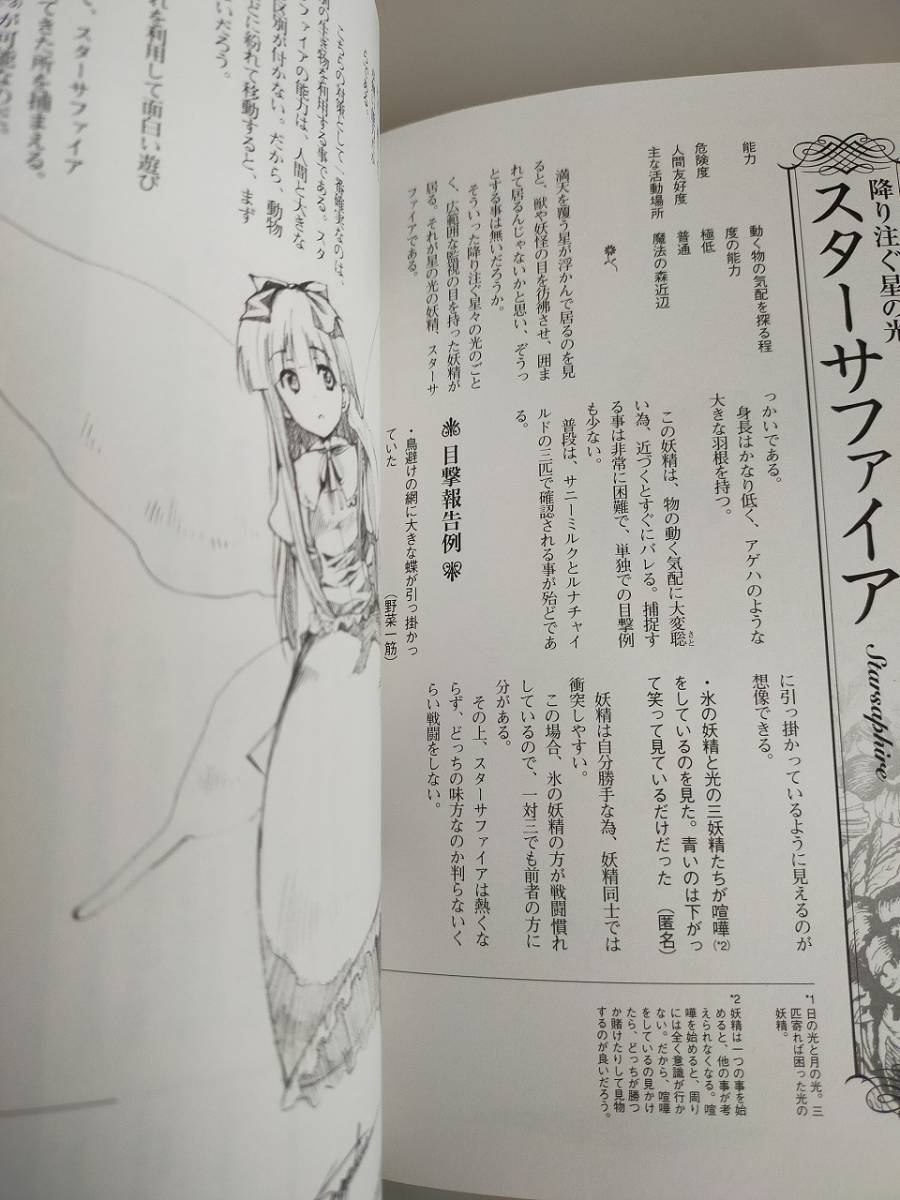 降り注ぐ星の光
スターサファイア
Starsaphire
能力
動く物の気配を探る程
度の能力
危険度
極低
人間友好度
普通
主な活動場所
魔法の森近辺
満天を覆う星が浮かんで居るのを見
ると、獣や妖怪の目を彷彿させ、囲ま
れて居るんじゃないかと思い、ぞうっ
とする事は無いだろうか。
そういった降り注ぐ星々の光のごと
く、広範囲な監視の目を持った妖精が
居る。それが星の光の妖精、スターサ
ファイアである。
っかいである。
身長はかなり低く、アゲハのような
大きな羽根を持つ。
この妖精は、物の動く気配に大変聡
さと
い為、近づくとすぐにバレる。捕捉す
る事は非常に困難で、単独での目撃例
も少ない。
普段は、サニーミルクとルナチャイ
ルドの三匹で確認される事が殆どであ
る。
目撃報告例
・鳥避けの網に大きな蝶が引っ掛かっ
ていた
（野菜一筋）
に引っ掛かっているように見えるのが
想像できる。
・氷の妖精と光の三妖精たちが喧嘩(*2)
をしているのを見た。青いのは下がっ
て笑って見ているだけだった （匿名）
妖精は自分勝手な為、妖精同士では
衝突しやすい。
この場合、氷の妖精の方が戦闘慣れ
しているので、一対三でも前者の方に
分がある。
その上、スターサファイアは熱くな
らず、どっちの味方なのか判らないく
らい戦闘をしない。
*1 日の光と月の光。三
匹寄れば困った光の
妖精。
*2 妖精は一つの事を始
めると、他の事が考
えられなくなる。喧
嘩を始めると、周り
には全く意識が行か
ない。だから、喧嘩
をしているの見かけ
たら、どっちが勝つ
か賭けたりして見物
するのが良いだろう。
こちらの対策として一番確実なのは、
別の生き物を利用する事である。スタ
ーサファイアの能力は、人間と大きな
区別が付かない。だから、動物
などに紛れて移動すると、まず
いだろう。
れを利用して面白い遊び
、スターサファイア
てきた所を捕まえる。
が可能なのだ